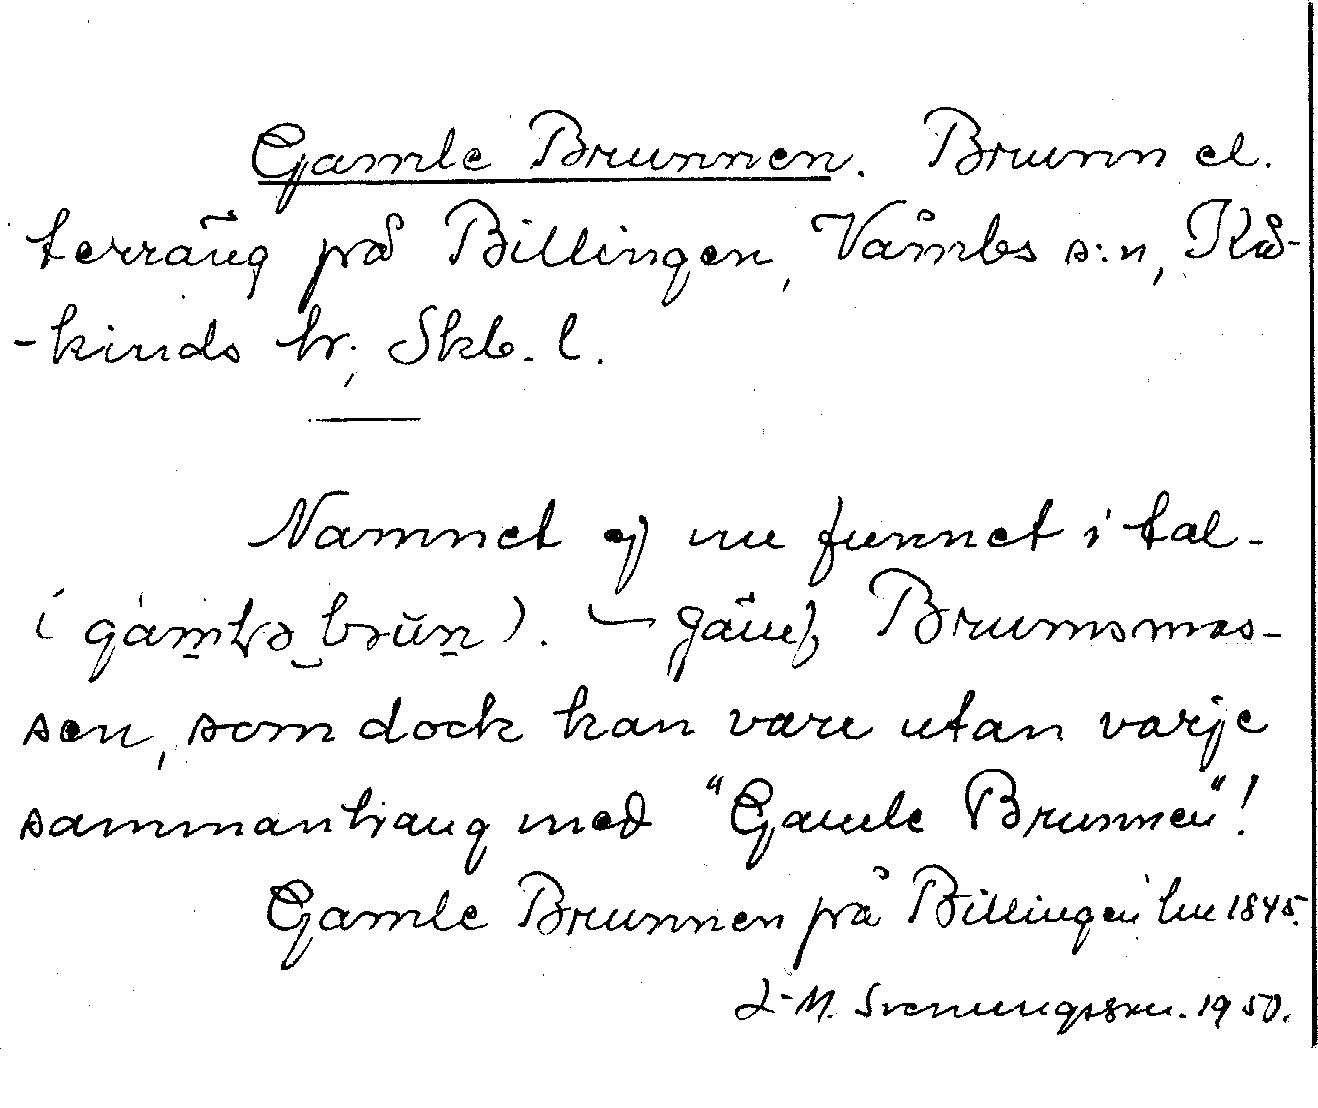 Gamle Brunnen. Brunn el.
terräng på Billingen, Våmbs s:n, Kå-
-kinds hr, Skb. l.
Namnet ej nu funnet i tal-
( ). – Jämf Brunnsmos-
sen, som dock kan vara utan varje
sammanhang med "Gamle Brunnen"!
Gamle Brunnen på Billingen Lm 1845.
J-M. Svenungsson. 1950.